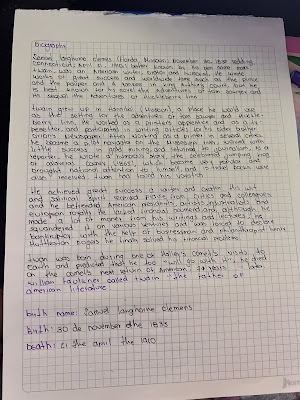 biography
Samuel langhorne clemens (Florida, Missouri; November 30, 1835 redding
connecticut, April 21, 1910) better known by his pen name mark
twain, was an American writer, orator and humorist. He wrote
works of great success and worldwide fame such as the prince
and the pauper and A yankee in king Arthur's court, but he
is best known for his novel the adventures of tom sawyer and
its sequel the Adventures of Huckleberry finn.
twain grew up in Hannibal (Missouri), a place he would use
as the setting for the adventures of tom sawyer and Huckle
berry finn. He worked as a printer's apprentice and as a
typesetter, and participated in writing articles for his older brother
Orion's newspaper. After working as a printer in several cities,
he became a pilot navigator on the Mississippi, worked with
little success in gold mining, and returned to journalism. As a
reporter, he wrote a humorous story, the celebrated jumping frog
of
county (1865), which became very popular and
brought national attention to himself, and
also received. twain had found his vocation.
He achieved great success a writer and
His wit
and satirical spirit received praise from critics and colleagues
and he befriended American presidents, artists, industrialists and
european royalty. He lacked financial
and, although he
made a lot of money from his writings and lectures, he
squandered it on various ventures and was forced to declare
bankruptcy. With the help of
and philanthropist henry
Huttleston Rogers he finally solved his financial problems.
twain was born during one of Halley's Comet's visits to
earth and predicted that he too "will go with it". He died
on the comet's next return
74 years later
william faulkner called twain "the father of
american literature".
birth name: Samuel langhorne clemens
birth: 30 de november the 1835
Death: 21 the april the 1910